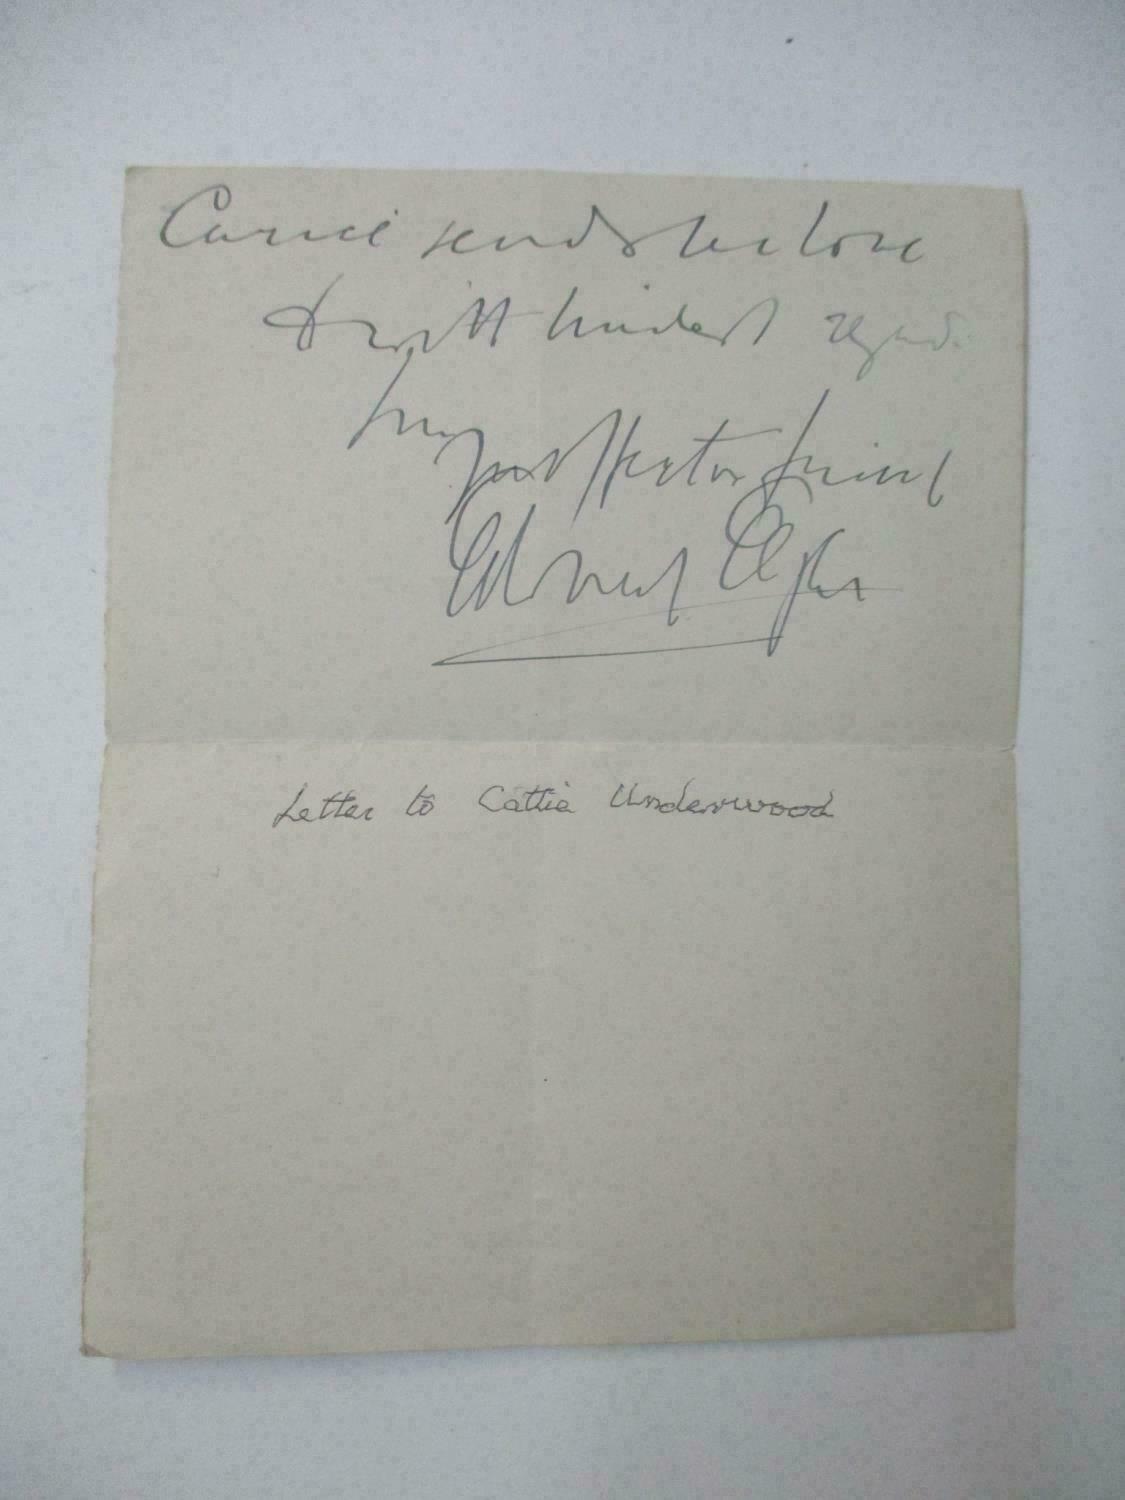 Carrice sends her love
& with kindest regards
from
your old friend
Edward Elgar
Letter to Cattie Underwood